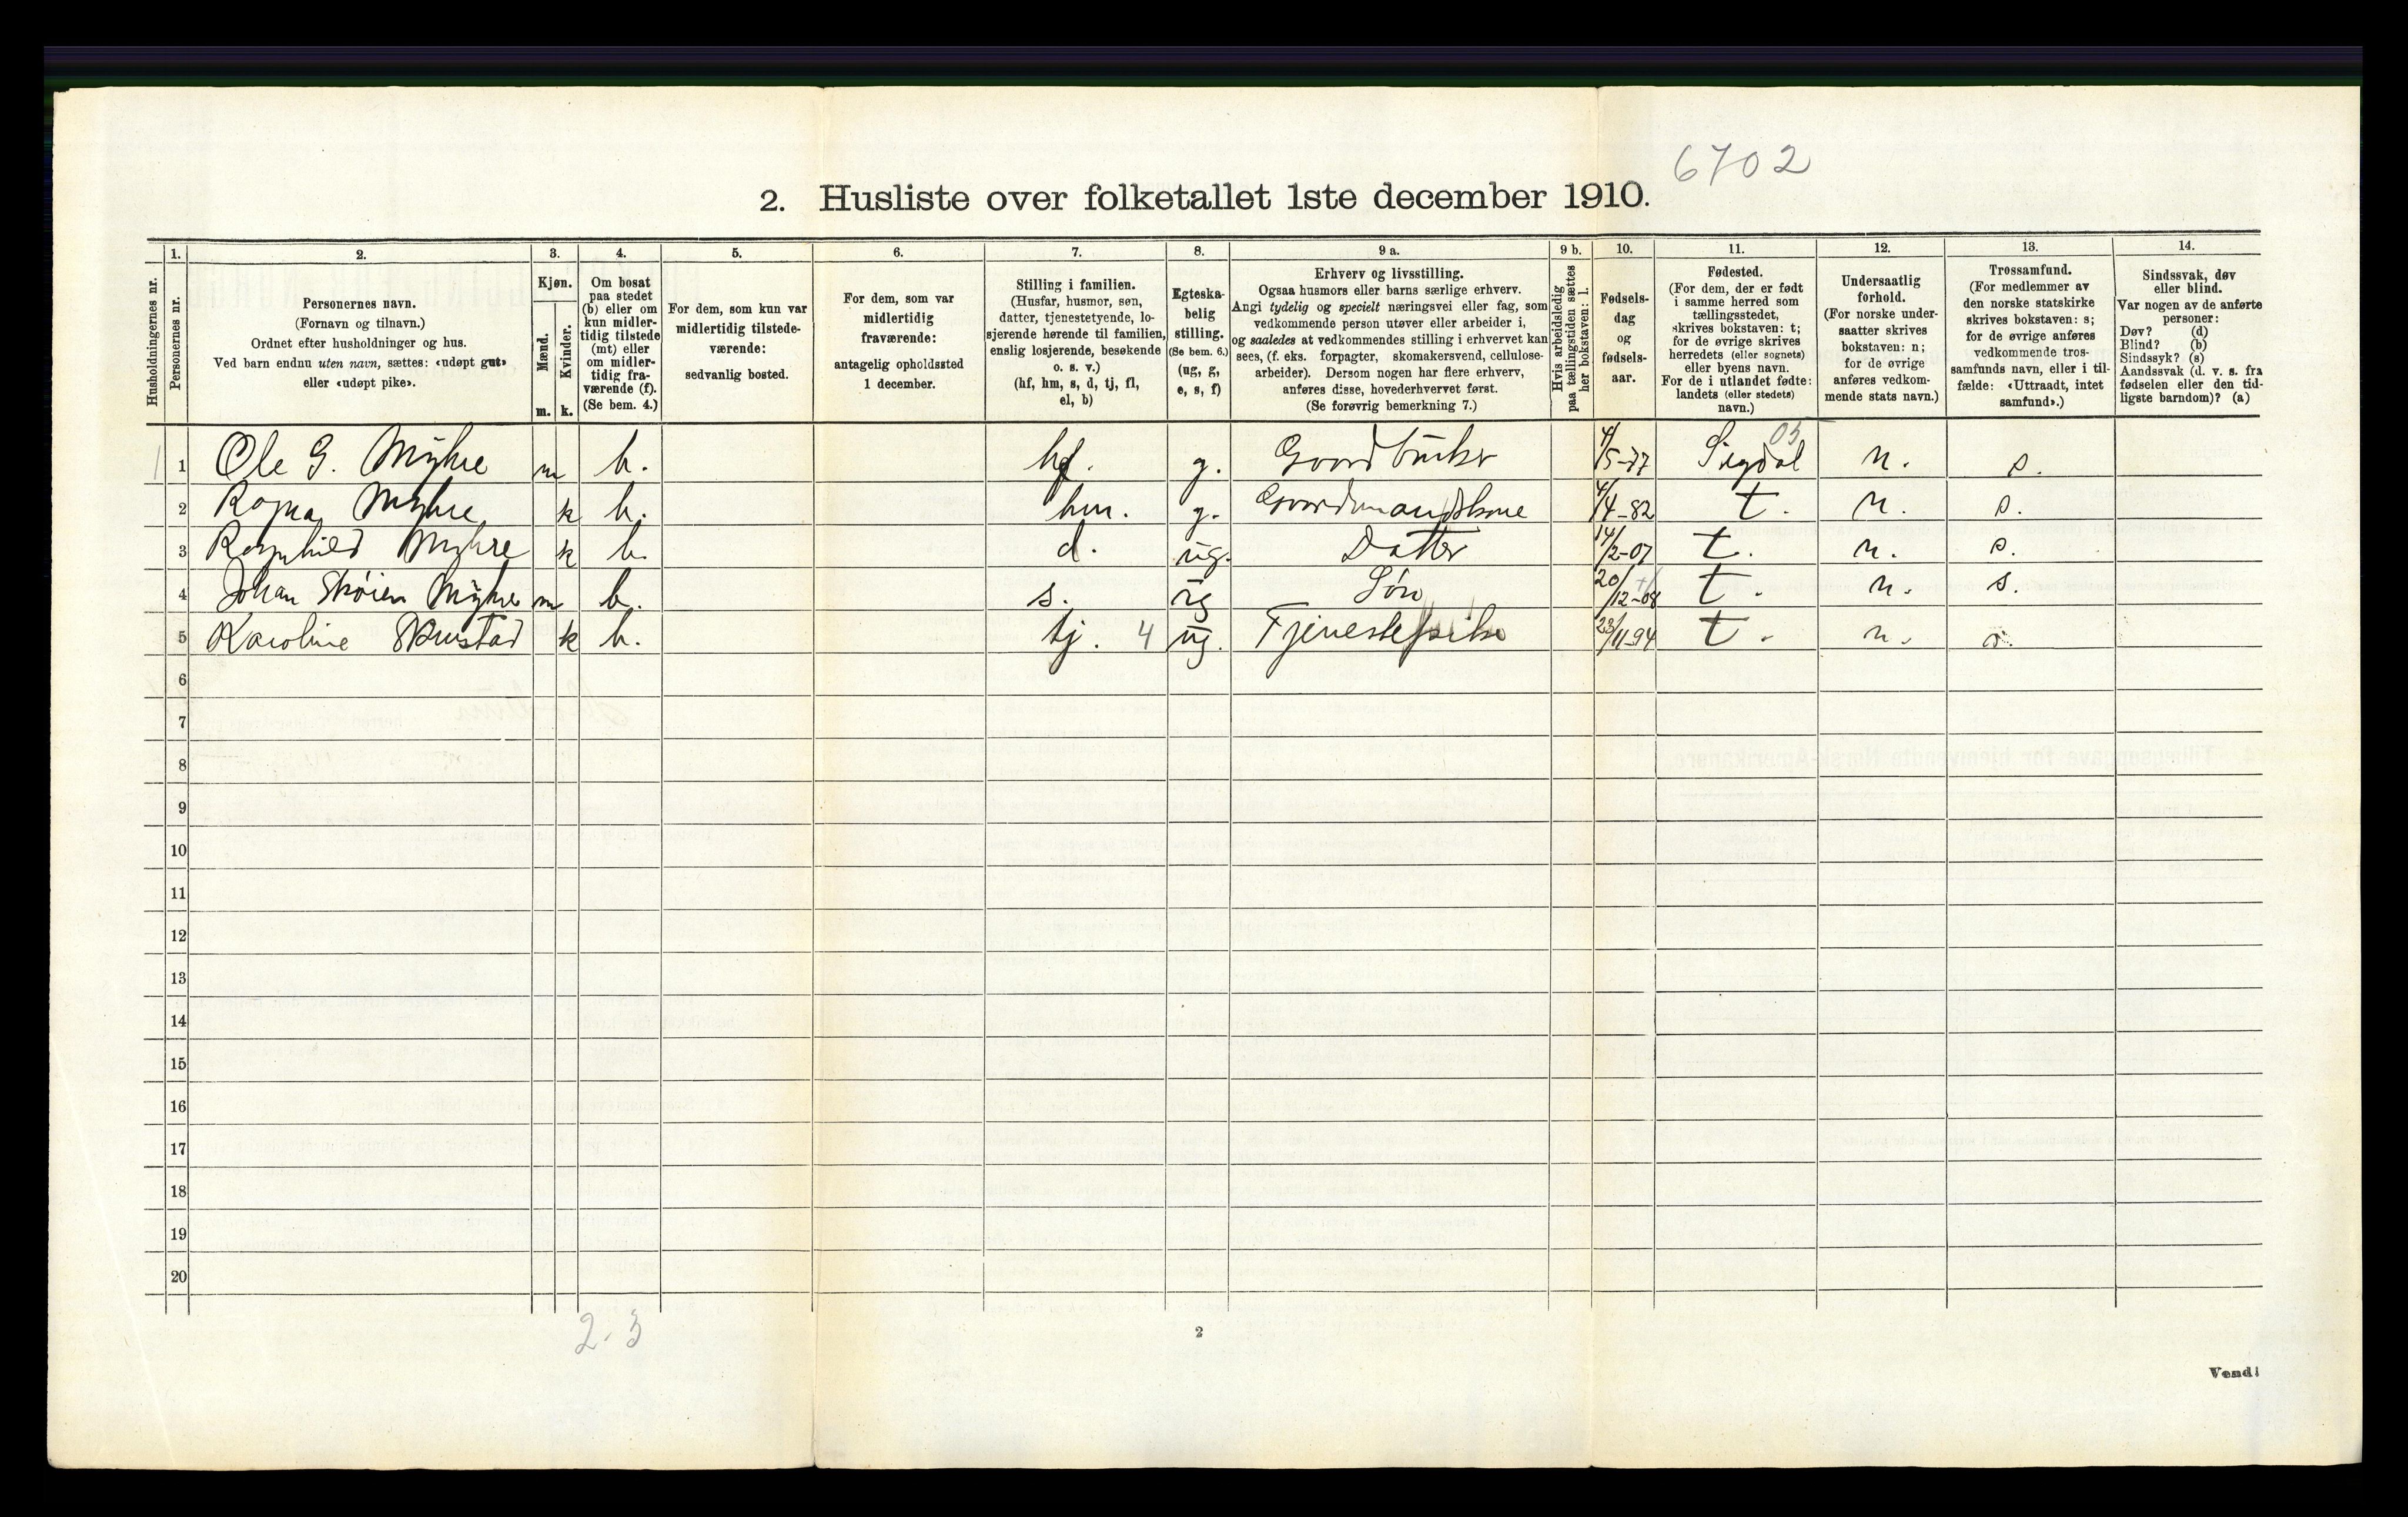 6702
2. Husliste over folketallet 1ste december 1910.
Husholdningernes nr.
1.
Personernes nr.
2.
Personernes navn.
(Fornavn og tilnavn.)
Ordnet efter husholdninger og hus.
Ved barn endnu uten navn, sættes: «udøpt gut»
eller «udøpt pike».
3.
Kjøn.
Mænd.
Kvinder.
m. k.
4.
Om bosat
paa stedet
(b) eller om
kun midler-
tidig tilstede
(mt) eller
om midler-
tidig fra-
værende (f).
(Se bem. 4.)
5.
For dem, som kun var
midlertidig tilstede-
værende:
sedvanlig bosted.
6.
For dem, som var
midlertidig
fraværende:
antagelig opholdssted
1 december.
7.
Stilling i familien.
(Husfar, husmor, søn,
datter, tjenestetyende, lo-
sjerende hørende til familien,
enslig losjerende, besøkende
o. s. v.)
(hf, hm, s, d, tj, fl,
el, b)
8.
Egteska-
belig
stilling.
(Se bem. 6.)
(ug, g,
e, s, f)
9 a.
Erhverv og livsstilling.
Ogsaa husmors eller barns særlige erhverv.
Angi tydelig og specielt næringsvei eller fag, som
vedkommende person utøver eller arbeider i,
og saaledes at vedkommendes stilling i erhvervet kan
sees, (f. eks. forpagter, skomakersvend, cellulose-
arbeider). Dersom nogen har flere erhverv,
anføres disse, hovederhvervet først.
(Se forøvrig bemerkning 7.)
9 b.
Hvis arbeidsledig
paa tællingstiden sættes
her bokstaven: l.
10.
Fødsels-
dag
og
fødsels-
aar.
11.
Fødested.
(For dem, der er født
i samme herred som
tællingsstedet,
skrives bokstaven: t;
for de øvrige skrives
herredets (eller sognets)
eller byens navn.
For de i utlandet fødte:
landets (eller stedets)
navn.)
12.
Undersaatlig
forhold.
(For norske under-
saatter skrives
bokstaven: n;
for de øvrige
anføres vedkom-
mende stats navn.)
13.
Trossamfund.
(For medlemmer av
den norske statskirke
skrives bokstaven: s;
for de øvrige anføres
vedkommende tros-
samfunds navn, eller i til-
fælde: «Uttraadt, intet
samfund».)
14.
Sindssvak, døv
eller blind.
Var nogen av de anførte
personer:
Døv? (d)
Blind? (b)
Sindssyk? (s)
Aandssvak (d. v. s. fra
fødselen eller den tid-
ligste barndom)? (a)
1 1 Ole G. Myhre m b. hf. g. Gaardbruker 4/5-77 Sigdal 03 n. s.
2 Ragna Myhre k b. hm. g. Gaardmandskone 4/4-82 t. n. s.
3 Ragnhild Myhre k b. d. ug. Datter 14/2-07 t. n. s.
4 Johan Skøien Myhre m b. s. ug Søn 20/12-08 t. n. s.
5 Karoline k b. tj. 4 ug. Tjenestepike 23/11-94 t. n. s.
6
7
8
9
10
11
12
13
14
15
16
17
18
19
20
2-3
2
Vend!